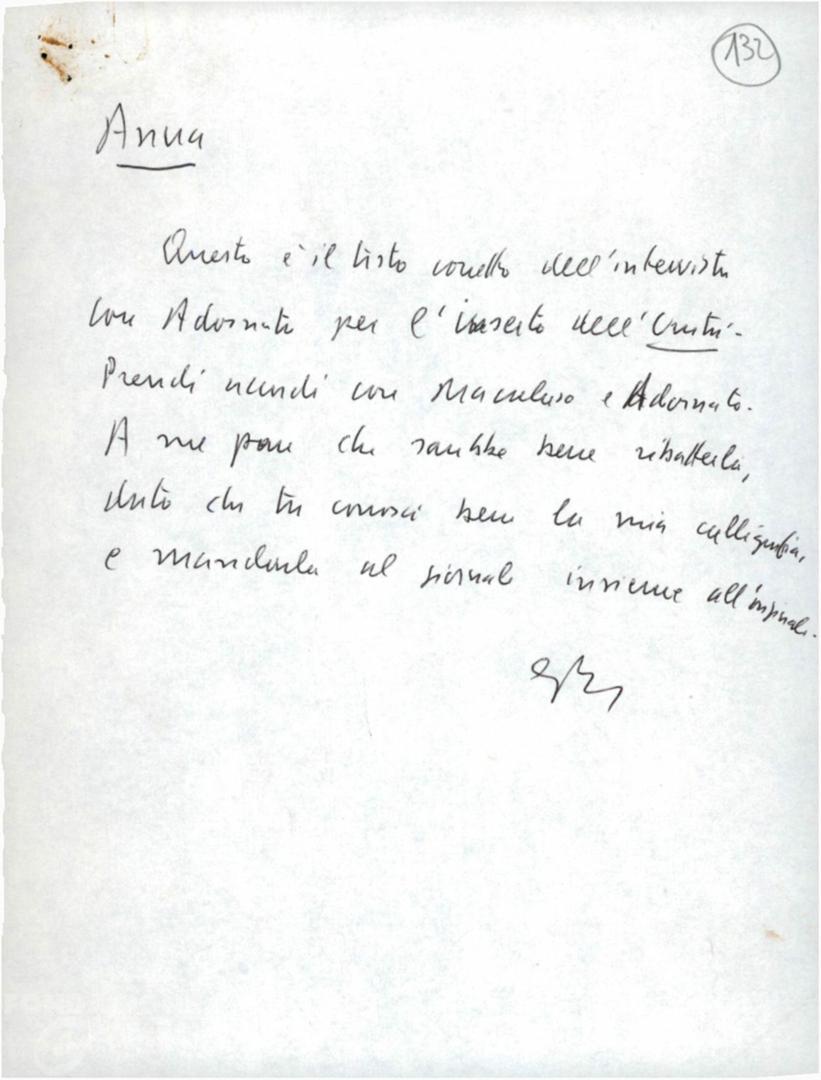 132
Anna
Questo è il testo corretto dell'intervista
con Adornato per l'inserto dell'Unità.
Prendi accordi con Macaluso e Adornato.
A me pare che sarebbe bene ribatterla,
dato che tu conosci bene la mia calligrafia,
e mandarla al giornale insieme all'originale.